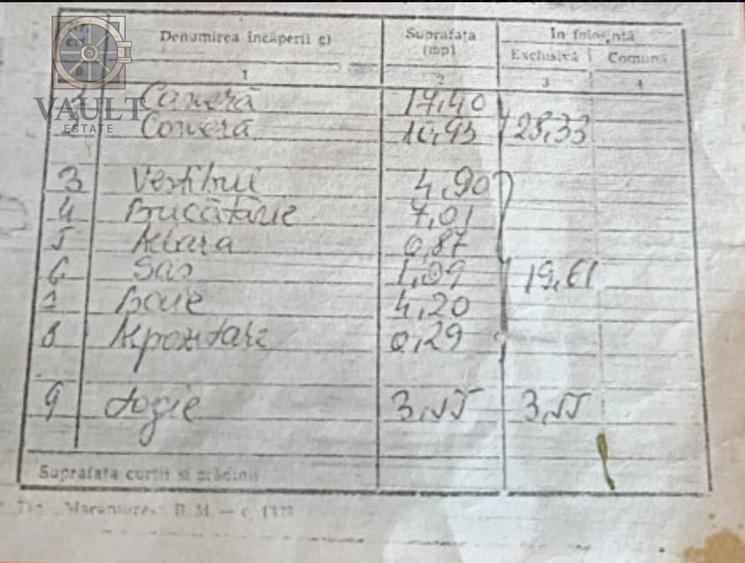 Denumirea încăperii c) Suprafața (mp) În folosință
Exclusivă Comună
1 2 3 4
VAULT
ESTATE
Cameră 17,40
Cameră 10,93 28,33
3 Vestibul 4,90
4 Bucătărie 7,01
5 0,87
6 Sas 1,09 19,61
Baie 4,20
8 0,29
9 Logie 3,55 3,55
Suprafața curții și grădinii
"Maramureș" B. M. — c.